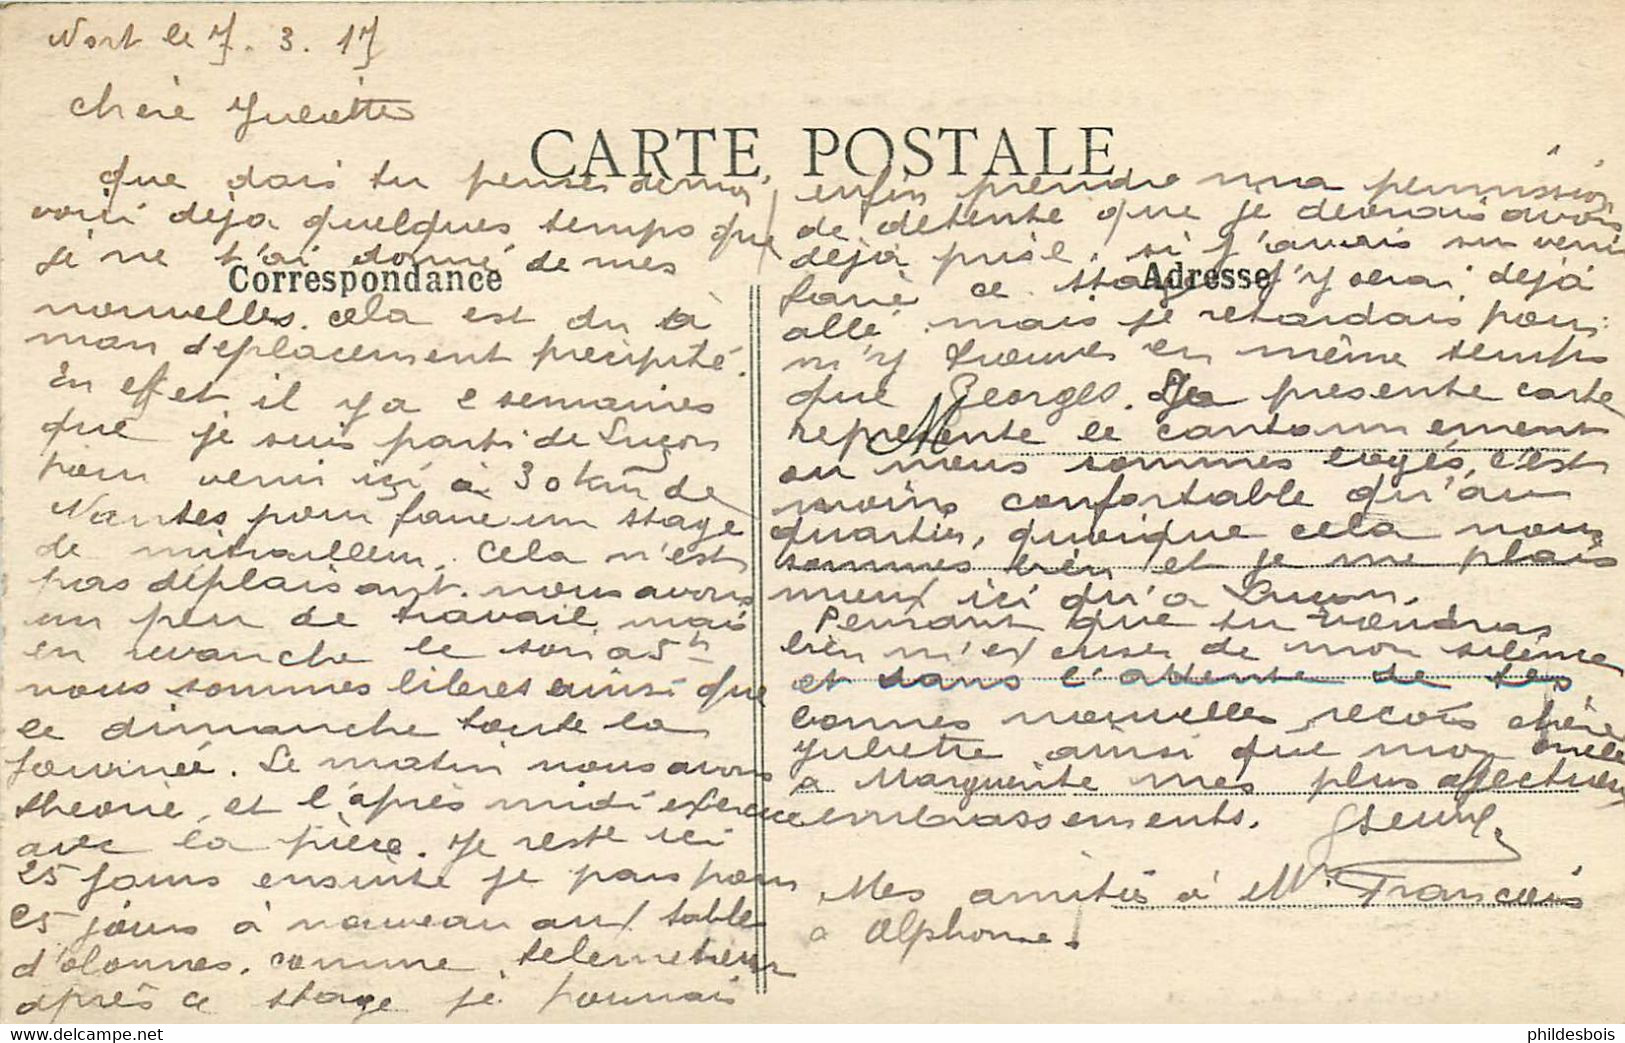 Nort le 7. 3. 17
Chère Juliette
CARTE POSTALE
que dois tu penser de moi,
voici déja quelques temps que
je ne t'ai donné de mes
Correspondance
nouvelles. cela est du à
mon déplacement précipité.
En effet il y a 2 semaines
que je suis parti de Luçon
pour venir ici à 30 km de
Nantes pour faire un stage
de mitrailleur. Cela n'est
pas déplaisant. nous avons
un peu de travail mais
en revanche le soir a 5h
nous sommes libres ainsi que
le dimanche toute la
journée. Le matin nous avons
theorie, et l'après midi exercice
avec la pièce. Je reste ici
25 jours ensuite je pars pour
25 jours à nouveau aux sable
d'olonnes, comme télémetreur
après ce stage je pourrais
enfin prendre ma permission
de détente que je devrais avoir
déjà prise, si j'avais su venir
faire ce stage j'y serai déjà
Adresse
allé mais je retardais pour
m'y trouver en même temps
que Georges. La presente carte
represente le cantonnement
ou nous sommes logés, c'est
moins confortable qu'au
quartier, quoique cela nous
sommes bien et je me plais
mieux ici qu'a Luçon.
Pendant que tu voudras
bien m'excuser de mon silence
et dans l'attente de tes
bonnes nouvelles reçois chère
Juliette ainsi que mon oncle
a Marguerite mes plus affectueux
embrassements.
Mes amitiés à Mr. François
a Alphonse.
phildesbois